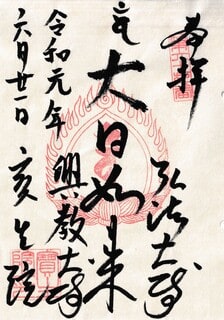 奉拝
弘法大師
大日如来
興教大師
令和元年
六月廿一日